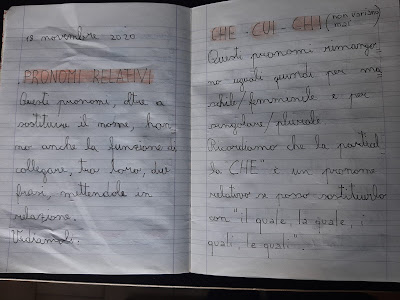 18 novembre 2020
PRONOMI RELATIVI
Questi pronomi, oltre a
sostituire il nome, han
no anche la funzione di
collegare, tra loro, due
frasi, mettendole in
relazione.
Vediamoli:
CHE - CUI - CHI (non variano
mai)
Questi pronomi rimango
no uguali quindi per ma
schile/femminile e per
singolare/plurale
Ricordiamo che la particel
la "CHE" è un pronome
relativo se posso sostituirlo
con "il quale, la quale, i
quali, le quali".